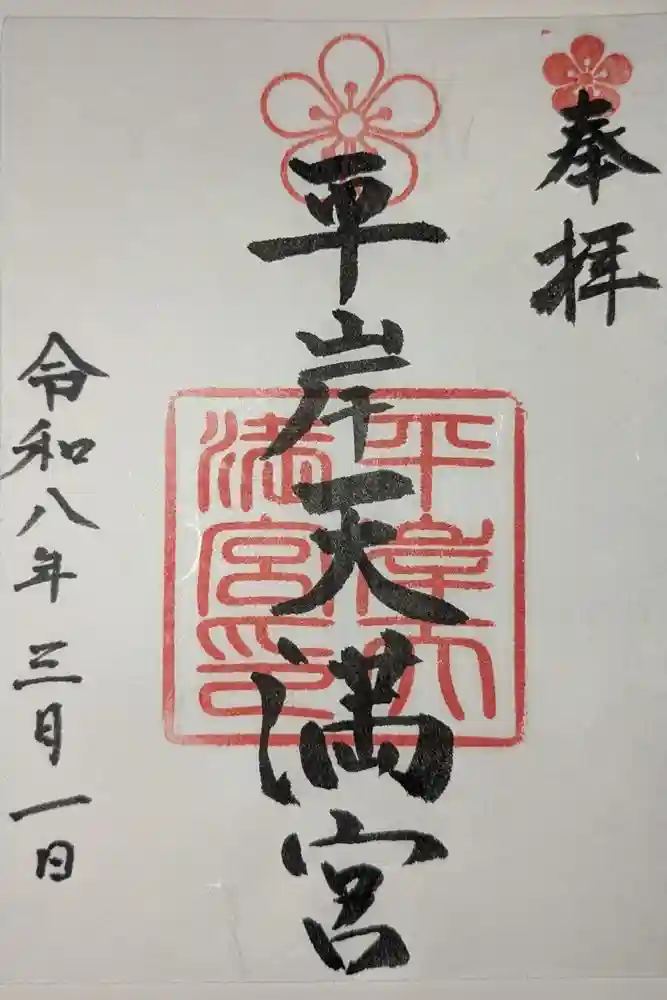 奉拝
平岸天満宮
平岸天
満宮印
令和八年三月一日